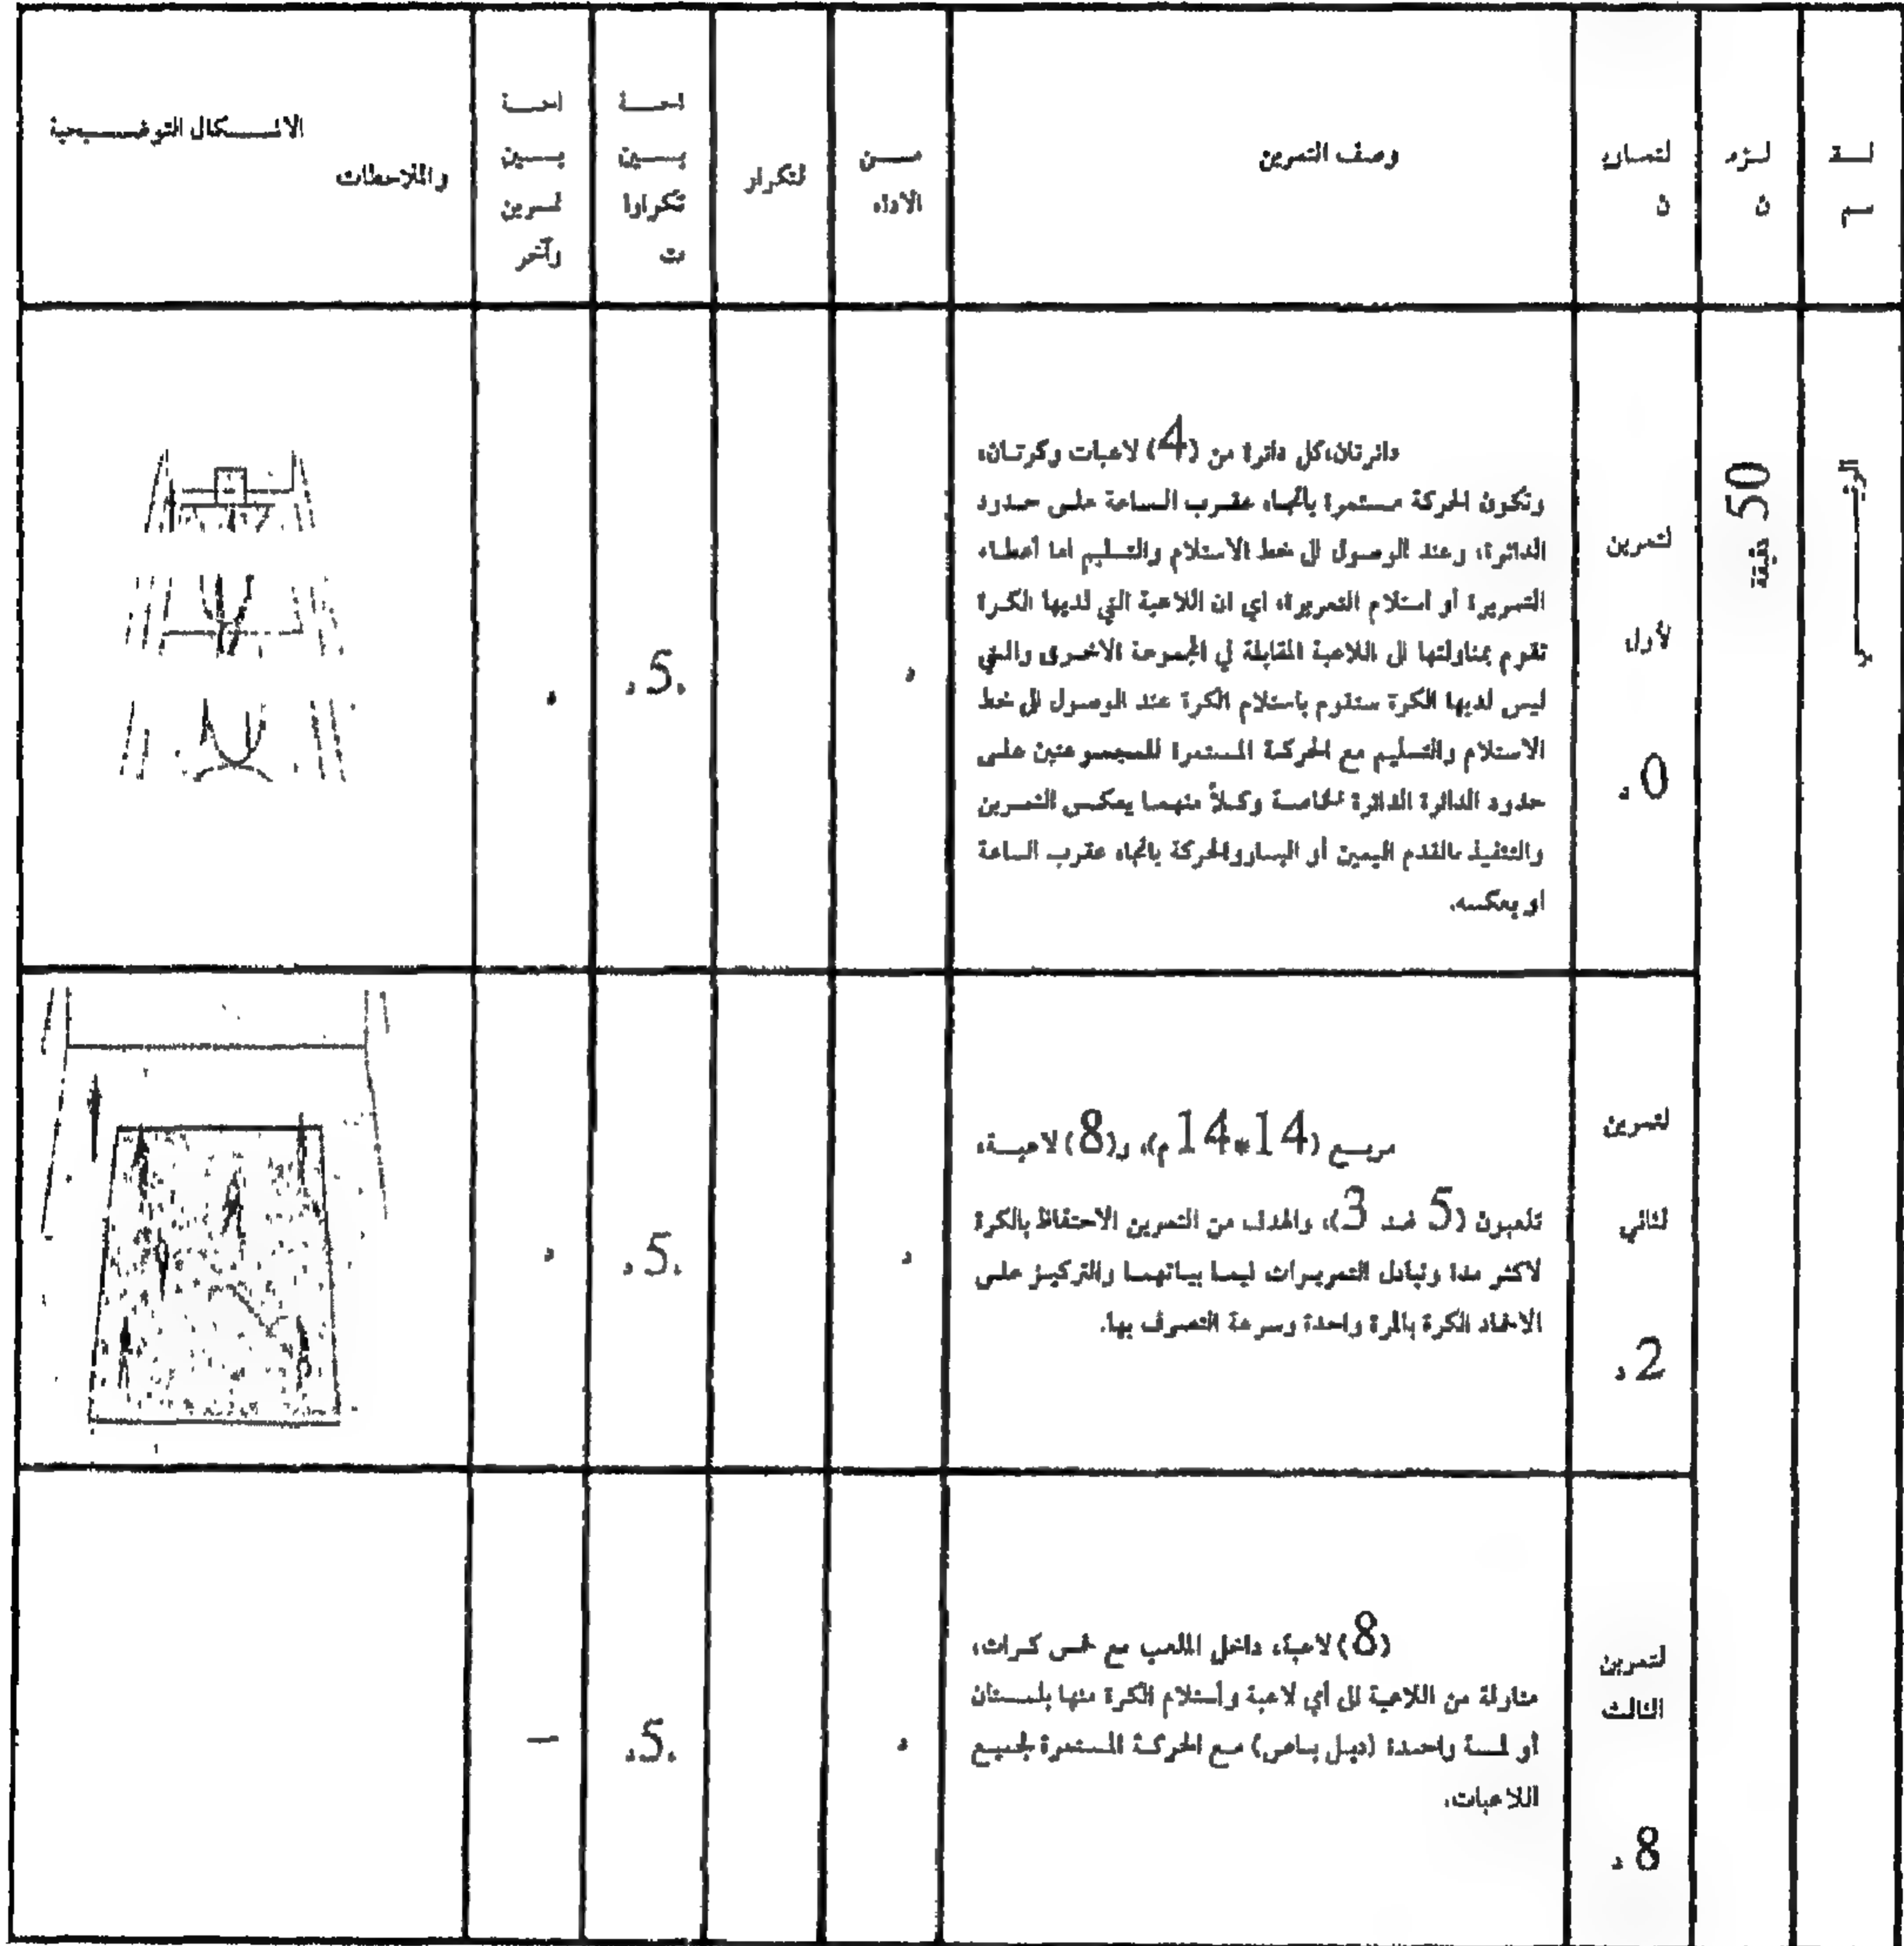 لقـ
سم
لـزم
ن
لتماريـ
ن
وصف التمرين
من
الاداء
لتكرار
احـة
بـين
تكرارا
ت
احـة
بـين
تمرين
وآخر
الاشـكال التوضـيحية
والملاحظات
50 دقيقة
لتمرين
لأول
0.د
دائرتان،كل دائرة من (4) لاعبات وكرتـان،
وتكون الحركة مستمرة باتجاه عقرب الساعة على حدود
الدائرة، وعند الوصول الى خط الاستلام والتسليم اما أعطاء
التمريرة أو استلام التمريرة، اي ان اللاعبة التي لديها الكرة
تقوم بمناولتها الى اللاعبة المقابلة في المجموعة الاخرى والتي
ليس لديها الكرة ستقوم باستلام الكرة عند الوصول الى خط
الاستلام والتسليم مع الحركة المستمرة للمجموعتين على
حدود الدائرة الدائرة الخاصة وكلاً منهما يعكس التمرين
والتنفيذ بالقدم اليمين أو اليساروالحركة باتجاه عقرب الساعة
او بعكسه.
د
.5.د
د
لتمرين
لثاني
2.د
مربع (14*14 م)، و(8) لاعبـة،
تلعبون (5 ضد 3)، والهدف من التمرين الاحتفاظ بالكرة
لاكثر مدة وتبادل التمريرات فيما بياتهما والتركيز على
الاخماد الكرة بالمرة واحدة وسرعة التصرف بها.
د
.5.د
د
لتمرين
الثالث
8.د
(8) لاعبة، داخل الملعب مع خمس كرات،
مناولة من اللاعبة الى أي لاعبة وأستلام الكرة منها بلمستان
أو لمسة واحدة (دبل باص) مع الحركة المستمرة لجميع
اللاعبات.
د
.5.د
–